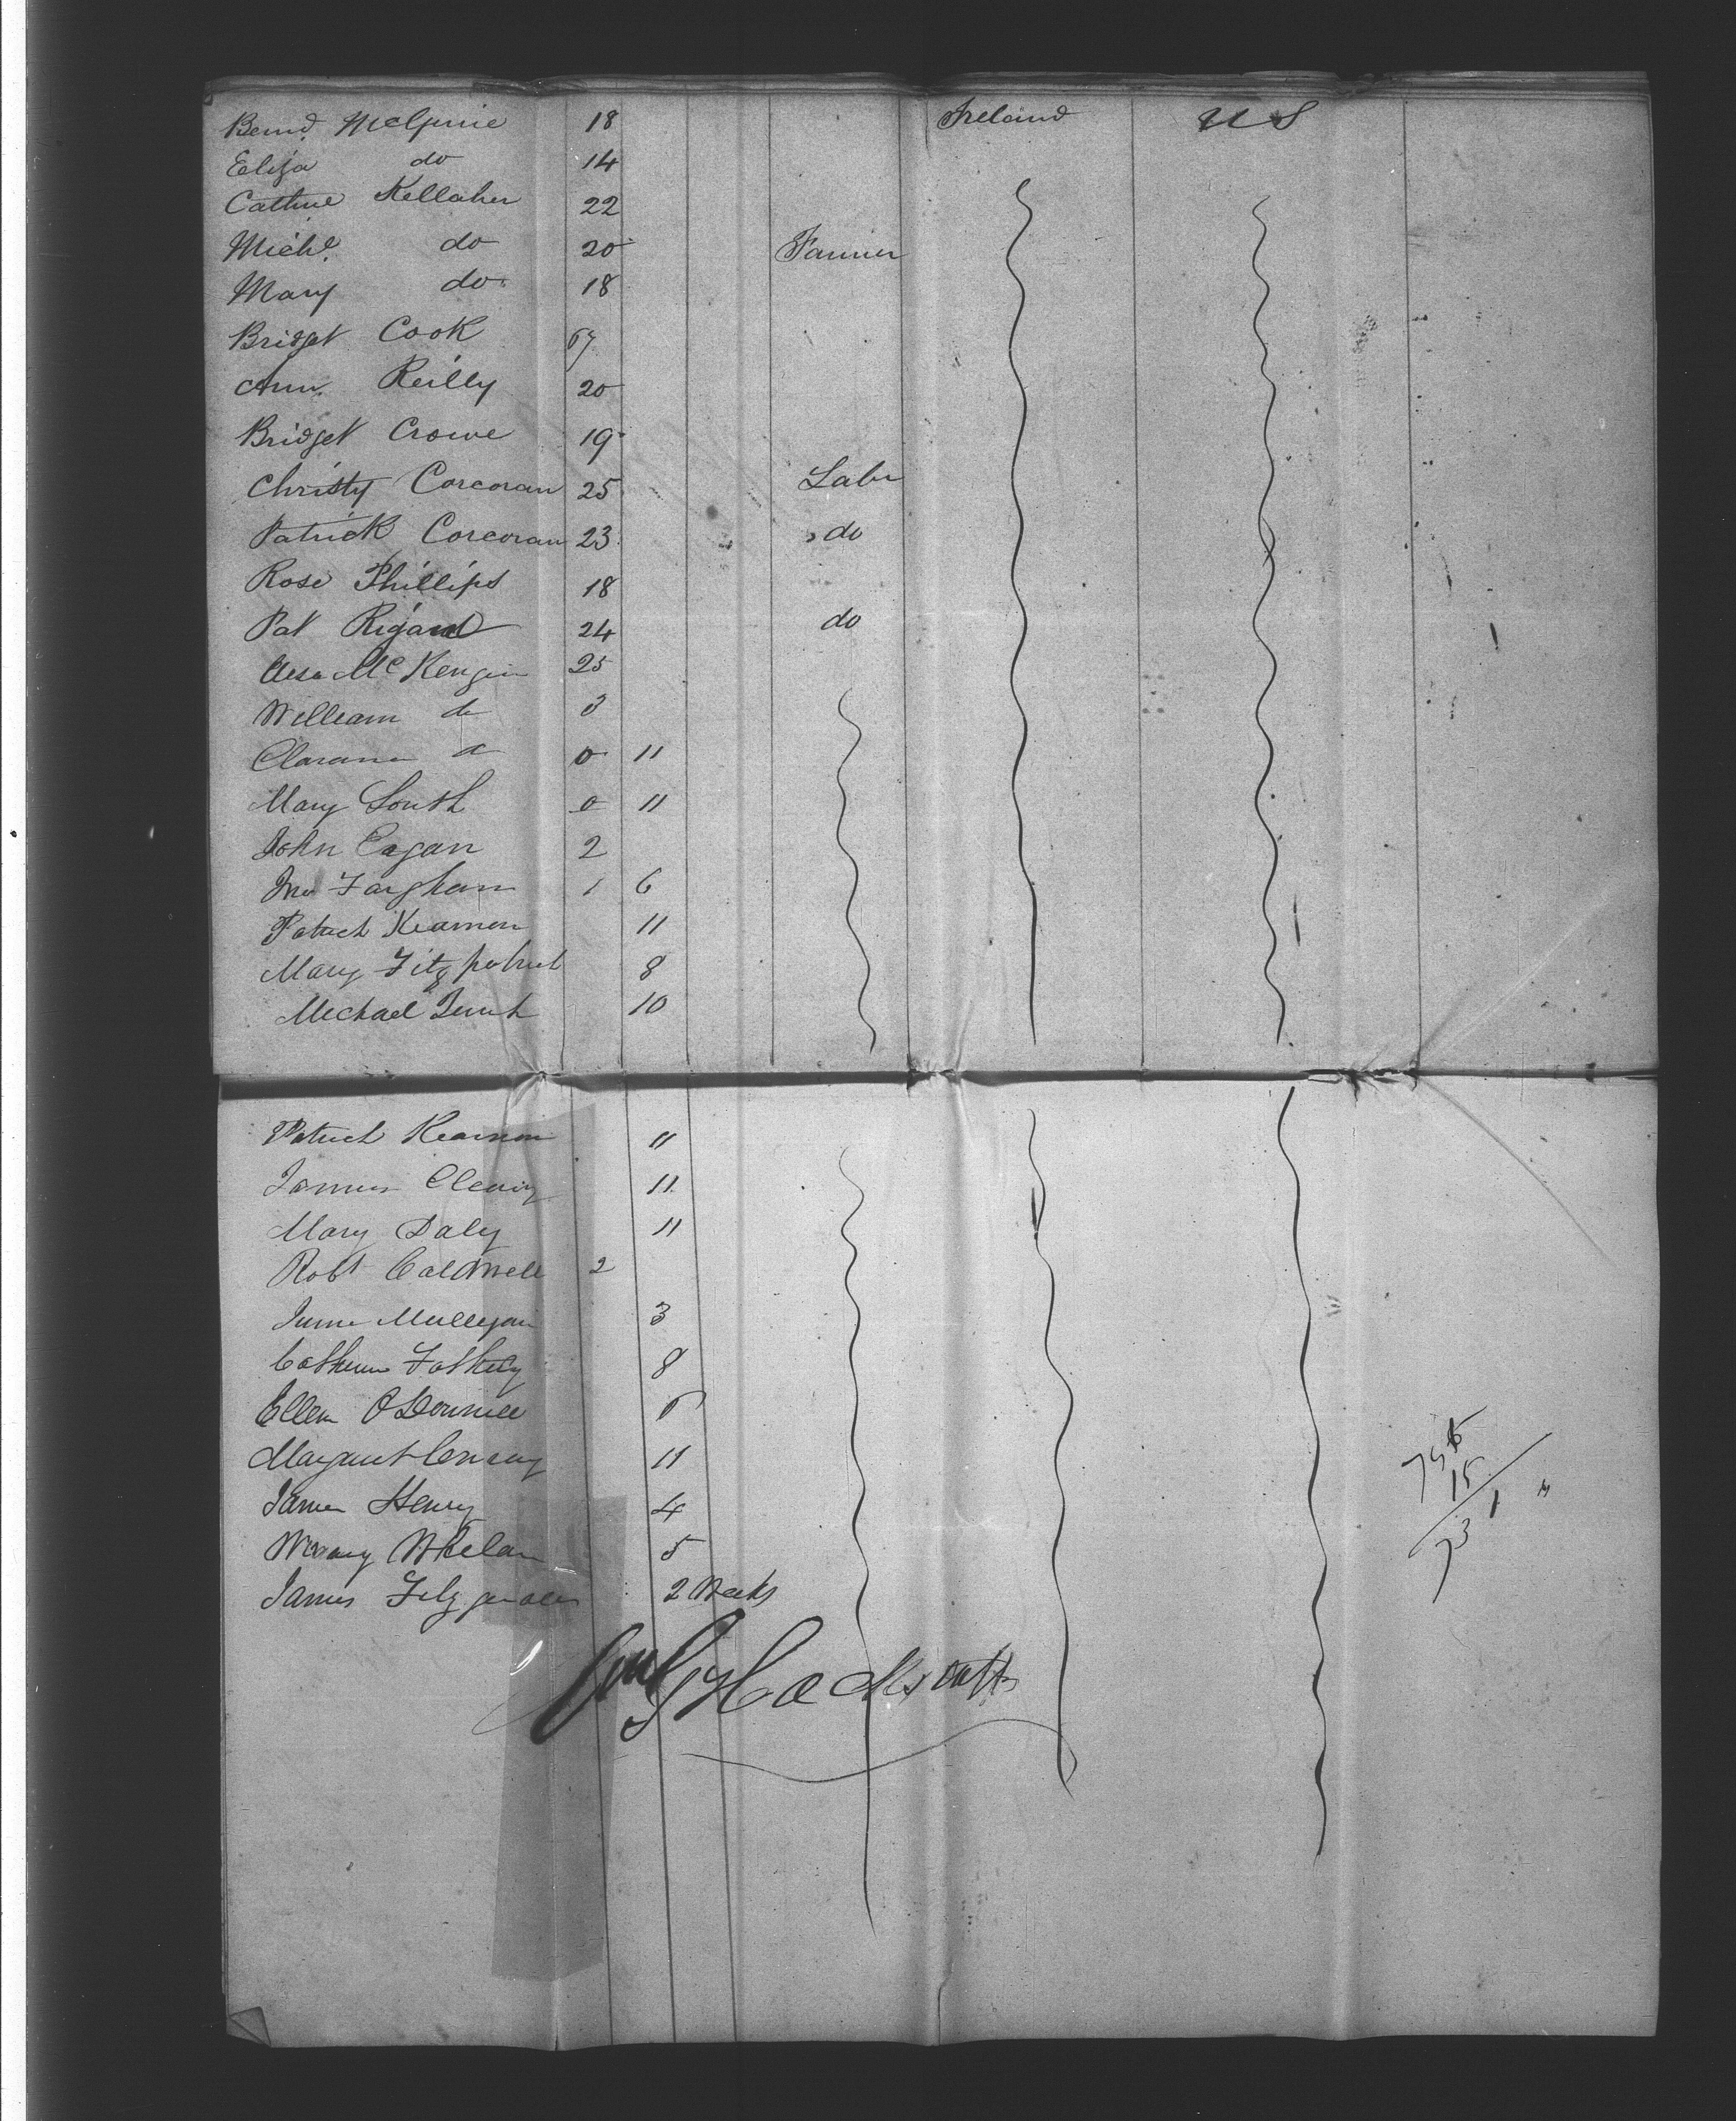 Bernd. McGuire 18 Ireland U S
Eliza do 14
Cathne Kellaher 22
Michl. do 20 Farmer
Mary do 18
Bridget Cook 67
Ann Reilly 20
Bridget Crowe 19
Christy Corcoran 25 Labr
Patrick Corcoran 23 do
Rose Phillips 18
Pat Rigard 24 do
Mc Kenzie 25
William do 3
Clarance do 0 11
Mary South 0 11
John Eagan 2
Jno 1 6
Patrick Kearnon 11
Mary Fitzpatrick 8
Michael 10
Patrick Kearnon 11
James Cleary 11
Mary Daly 11
Robt Caldwell 2
Mulligan 3
Catherine 8
Ellen O Donnell
Margaret Conroy 11
James Henry 4
Whelan 5
James Fitzgerald 2 Weeks
15